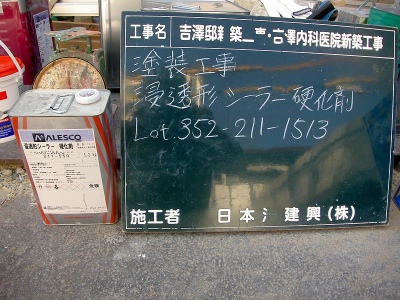 工事名 吉澤邸新築工事・吉澤内科医院新築工事
塗装工事
浸透形シーラー硬化剤
Lot.352-211-1513
施工者 日本 建興(株)
ALESCO
浸透形シーラー 硬化剤